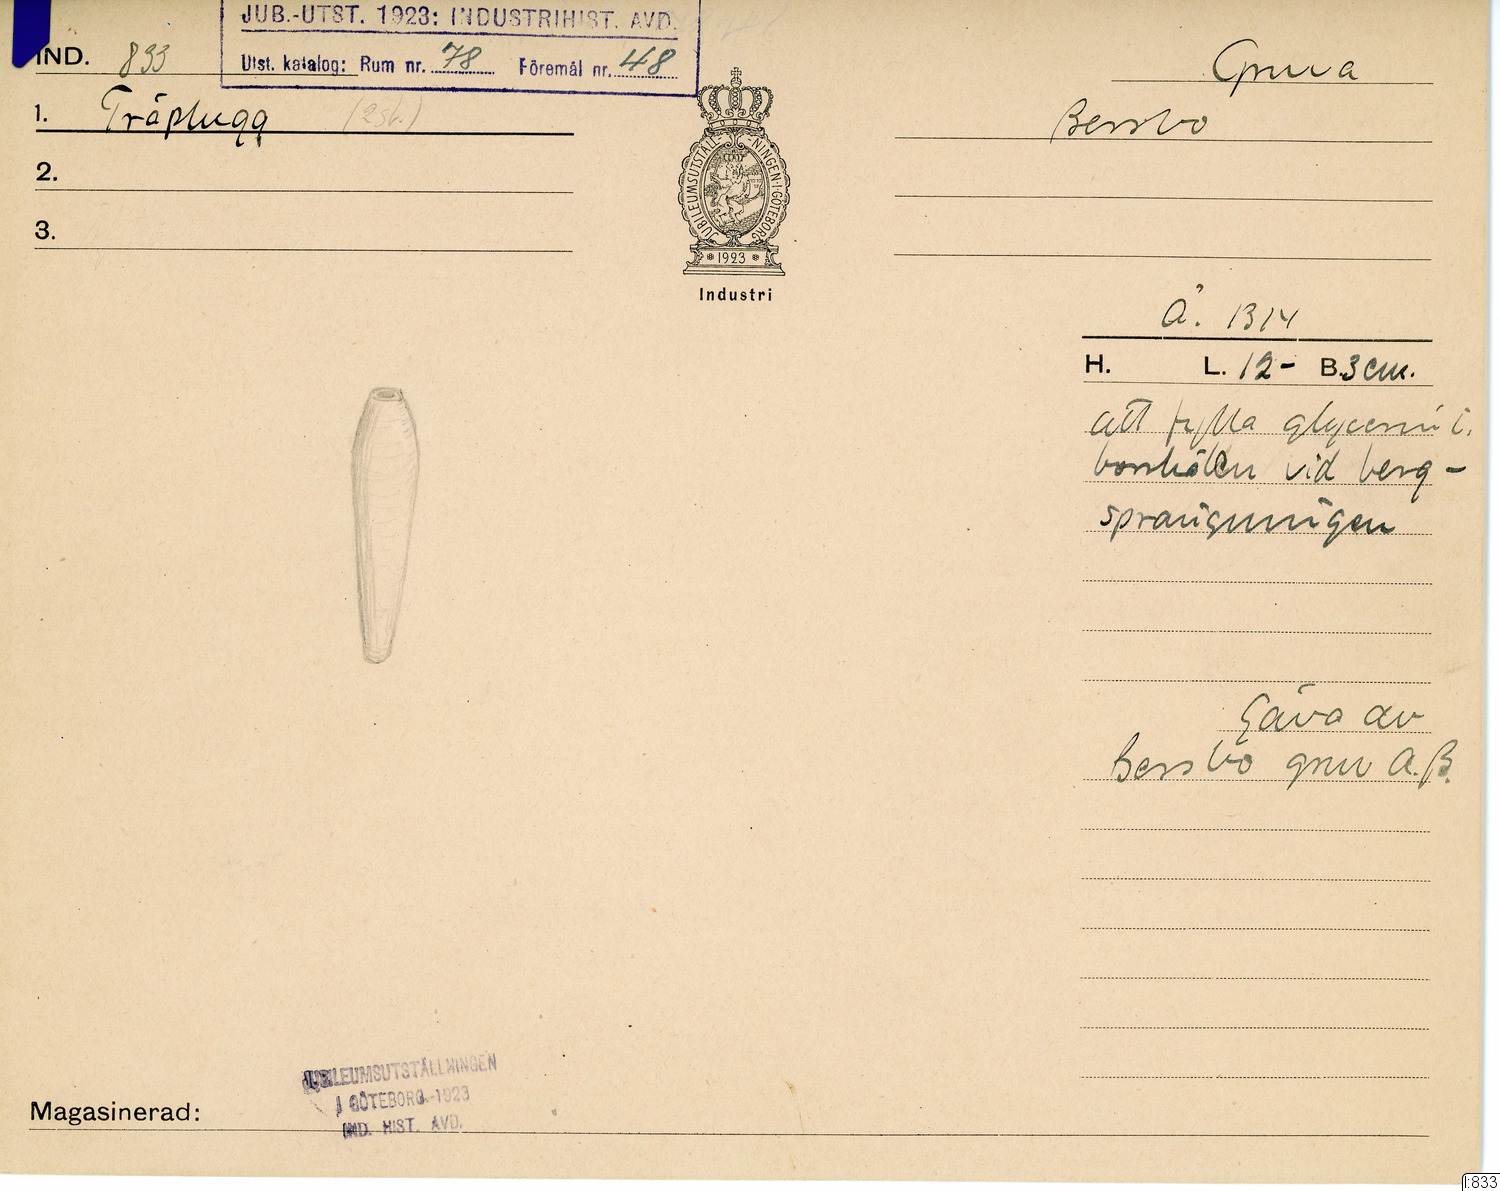 JUB.-UTST. 1923: INDUSTRIHIST. AVD.
Utst. katalog: Rum nr. 78 Föremål nr. 48
IND. 833
1. Träplugg (2 st.)
2.
3.
JUBILEUMSUTSTÄLLNINGEN I GÖTEBORG
1923
Industri
Gruva
Bersbo
Å. 1314
H. L. 12- B. 3 cm.
att fylla glycerin i
borrhålen vid berg-
sprängningen
Gåva av
Bersbo gruv A.B.
JUBILEUMSUTSTÄLLNINGEN
I GÖTEBORG 1923
IND. HIST. AVD.
Magasinerad:
I:833